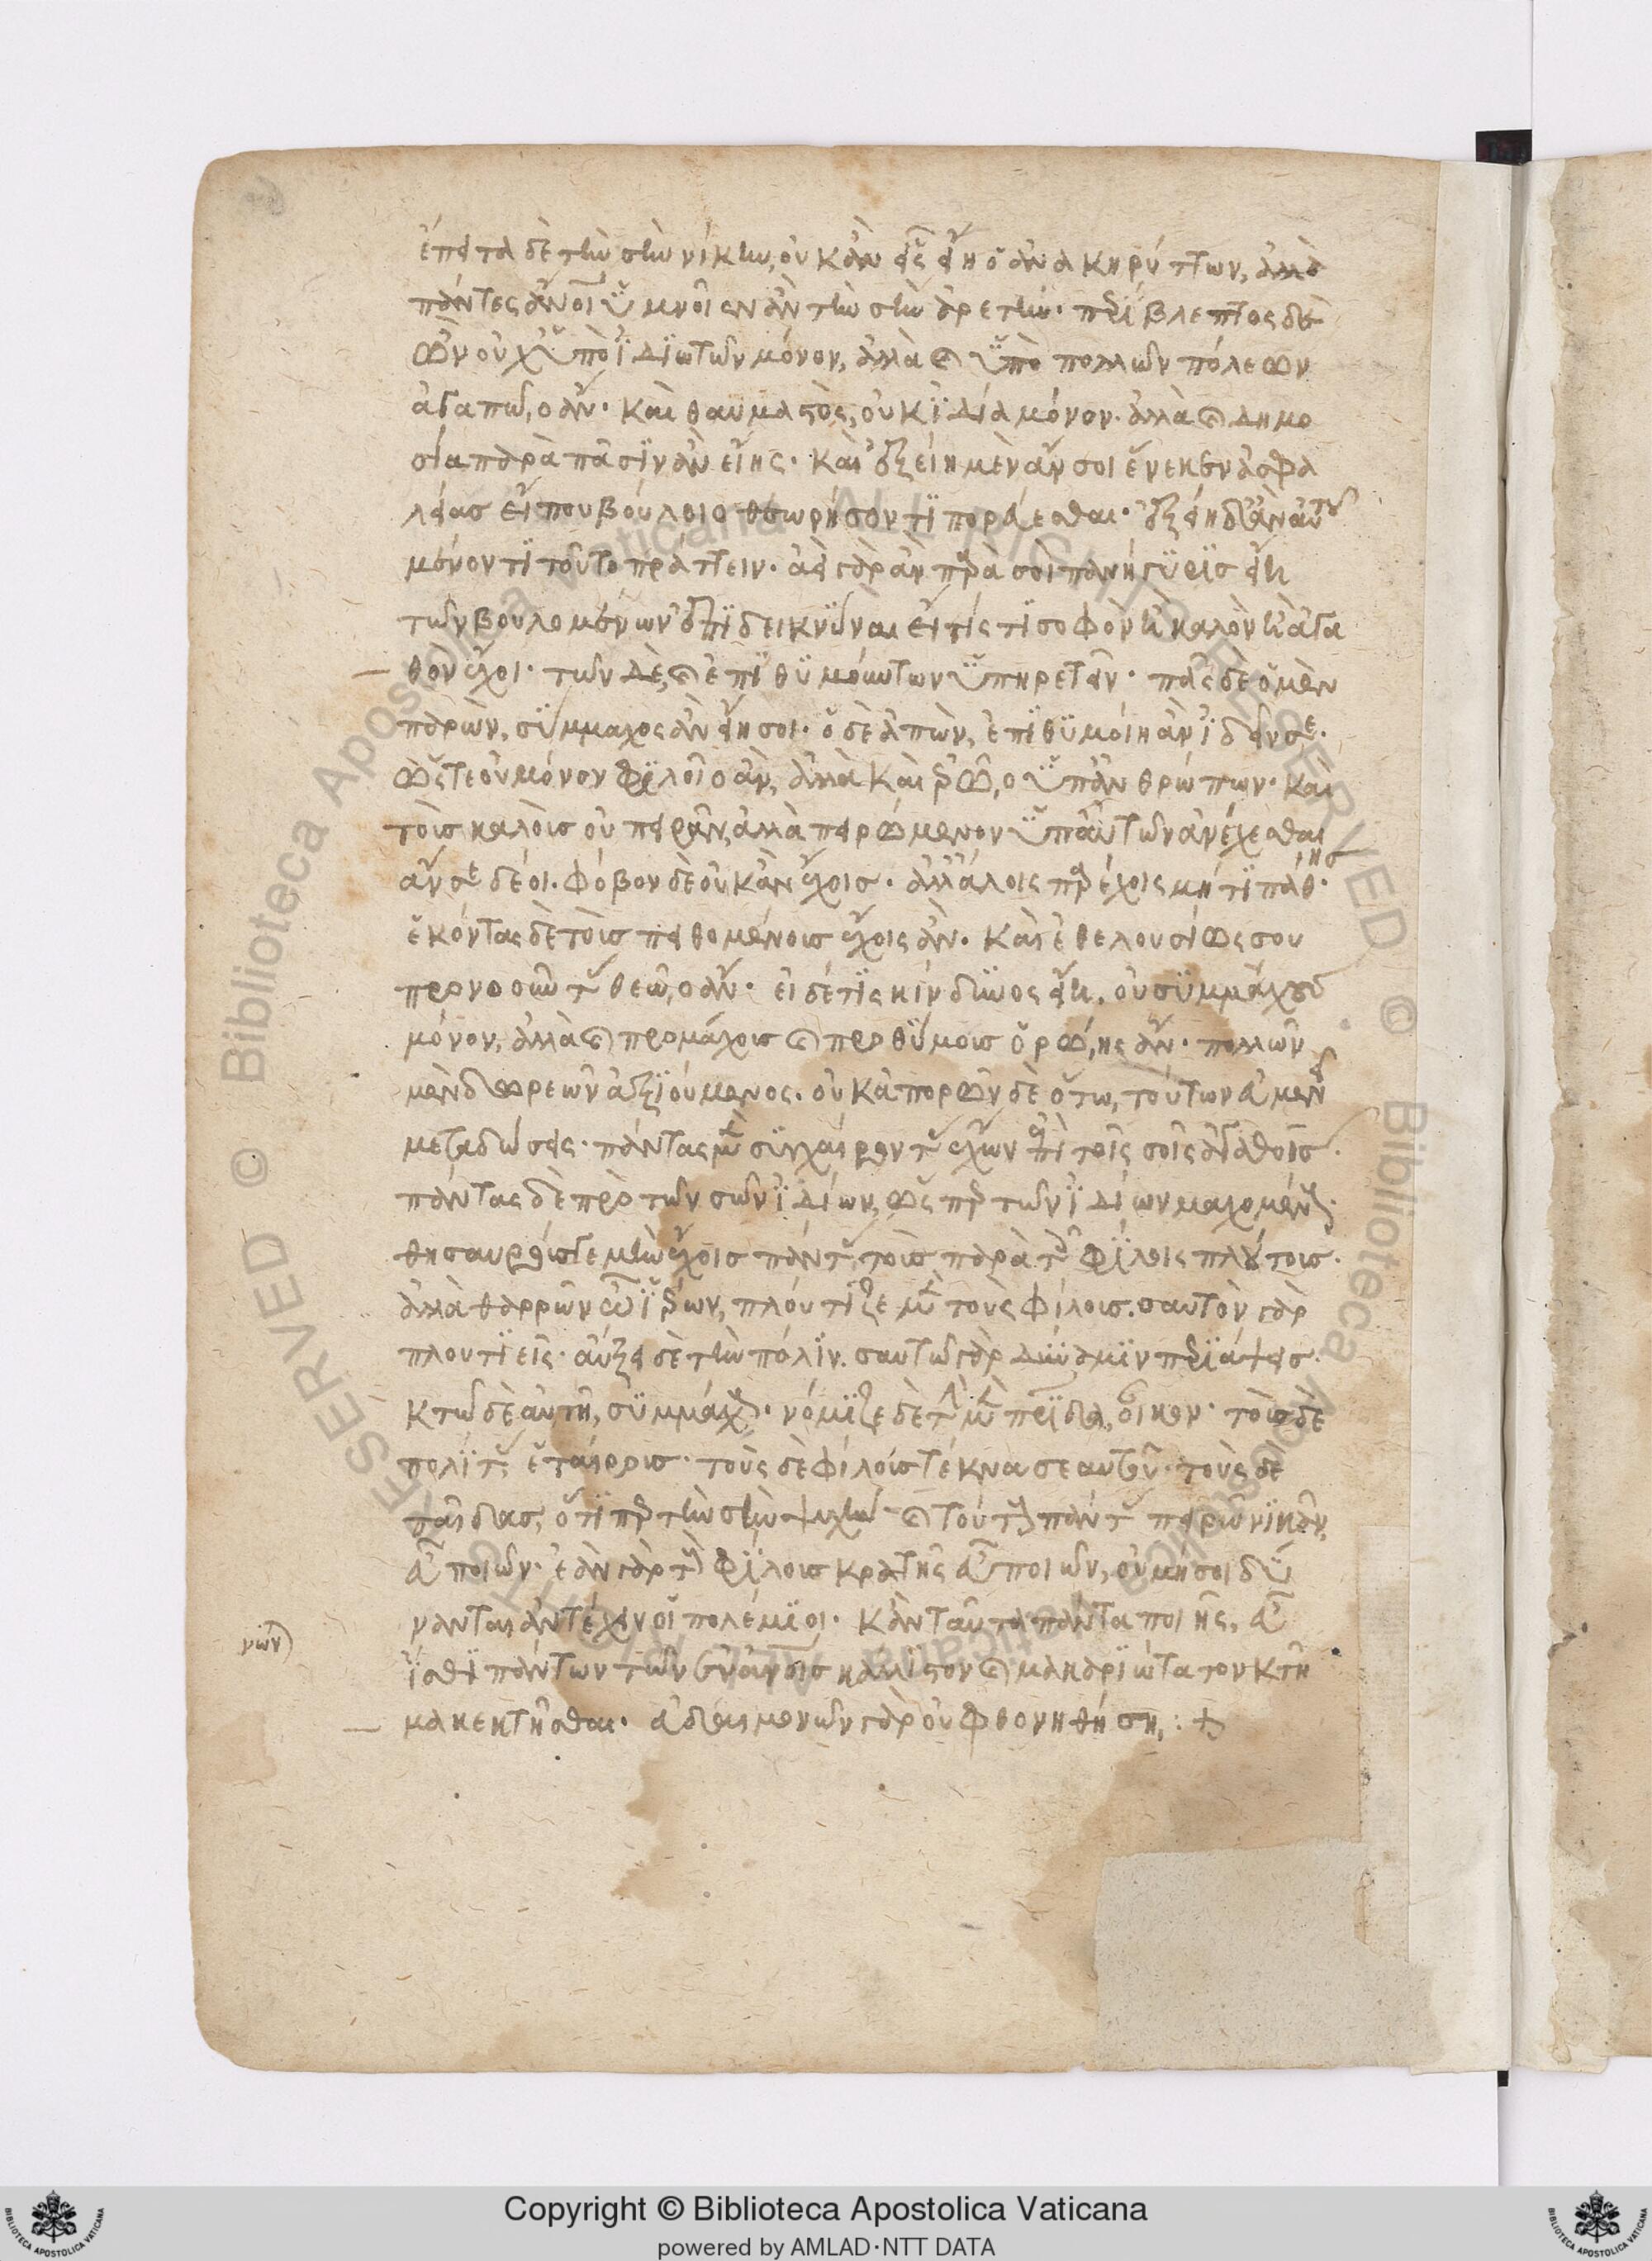 ἔπειτα δὲ τὴν σὴν νίκην, οὐκ ἂν εἷς εἴη ὁ ἀνακηρύττων, ἀλλὰ
πάντες ἄνοι ὑμνοῖεν ἂν τὴν σὴν ἀρετήν· περίβλεπτος δὲ
ὢν οὐχ ὑπὸ ἰδιωτῶν μόνον, ἀλλὰ καὶ ὑπὸ πολλῶν πόλεων
ἀγαπῶιο ἄν· καὶ θαυμαστὸς, οὐκ ἰδία μόνον· ἀλλὰ καὶ δημο
σία παρὰ πᾶσιν ἂν εἴης· καὶ ἐξείη μὲν ἄν σοι ἕνεκεν ἀσφα
λείας εἴ που βούλοιο θεωρήσοντι πορεύεσθαι· ἐξείη δ' ἂν αὐτοῦ
μένοντι τοῦτο πράττειν· ἀεὶ γὰρ ἂν παρὰ σοὶ πανήγυρις εἴη
τῶν βουλομένων ἐπιδεικνύναι εἴ τίς τι σοφὸν ἢ καλὸν ἢ ἀγα
θὸν ἔχοι· τῶν δὲ, καὶ ἐπιθυμούντων ὑπηρετεῖν· πᾶς δὲ ὁ μὲν
παρὼν, σύμμαχος ἂν εἴη σοι· ὁ δὲ ἀπὼν, ἐπιθυμοίη ἂν ἰδεῖν σε·
ὥστε οὐ μόνον φιλοῖο ἂν, ἀλλὰ καὶ ἐρῶιο ὑπ' ἀνθρώπων· καὶ
τοὺς καλοὺς οὐ πειρᾶν, ἀλλὰ πειρώμενον ὑπ' αὐτῶν ἀνέχεσθαι
ἄν σε δέοι. φόβον δὲ οὐκ ἂν ἔχοις· ἀλλ' ἄλλοις παρέχοις μή τι πάθης·
ἑκόντας δὲ τοὺς πειθομένους ἔχοις ἄν· καὶ ἐθελουσίως σου
προνοοῦντας θεῶιο ἄν· εἰ δέ τις κίνδυνος εἴη, οὐ συμμάχους
μόνον, ἀλλὰ καὶ προμάχους καὶ προθύμους ὁρώιης ἄν· πολλῶν
μὲν δωρεῶν ἀξιούμενος· οὐκ ἀπορῶν δὲ ὅτω, τούτων εὐμενεῖ
μεταδώσεις· πάντας μὲν συγχαίροντας ἔχων ἐπὶ τοῖς σοῖς ἀγαθοῖς·
πάντας δὲ πρὸ τῶν σῶν ἰδίων, ὡς περὶ τῶν ἰδίων μαχομένους·
θησαυρούς γε μὴν ἔχοις πάντας τοὺς παρὰ τοῖς φίλοις πλούτους·
ἀλλὰ θαρρῶν ὦ ἱέρων, πλούτιζε μὲν τοὺς φίλους· σαυτὸν γὰρ
πλουτιεῖς· αὖξε δὲ τὴν πόλιν· σαυτῶ γὰρ δύναμιν περιάψεις·
κτῶ δὲ αὐτῆ, συμμάχους· νόμιζε δὲ τὴν μὲν πατρίδα, οἶκον· τοὺς δὲ
πολίτας, ἑταίρους· τοὺς δὲ φίλους τέκνα σεαυτοῦ· τοὺς δὲ
παῖδας, ὅτι περ τὴν σὴν ψυχήν· καὶ τούτους πάντας πειρῶ νικᾶν,
εὖ ποιῶν· ἐὰν γὰρ τοὺς φίλους κρατῆς εὖ ποιῶν, οὐ μή σοι δύ
νανται ἀντέχειν οἱ πολέμιοι· κἂν ταῦτα πάντα ποιῆς, εὖ
νων
ἴσθι πάντων τῶν ἐν ἀνοις κάλλιστον καὶ μακαριώτατον κτῆ
μα κεκτῆσθαι· εὐδαιμονῶν γὰρ οὐ φθονηθήση: